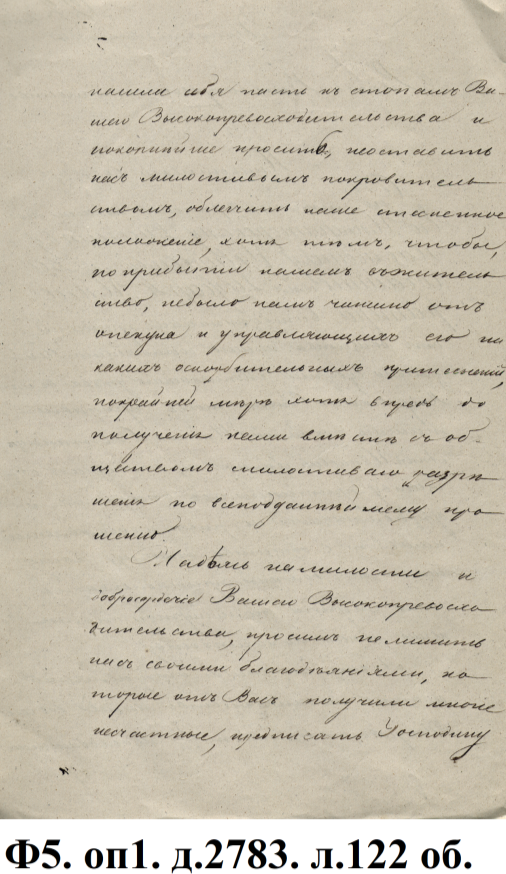 нашли себя пасть къ стопамъ Ва-
шего Высокопревосходительства и
покорнѣйше просить, неоставить
насъ милостивымъ покровитель
ствомъ, облегчить наше стѣсненное
положеніе, хотя тѣмъ, чтобы,
по прибытіи нашемъ въ жительс
ство, небыло намъ чинимо отъ
опекуна и управляющихъ его ни
какихъ оскорбительныхъ притѣсненій,
покрайней мѣрѣ хотя впредь до
полученія нами вмѣстѣ съ об-
ществомъ милостиваго разрѣ
шенія по всеподданнѣйшему про
шенію.
Надѣясь на милости и
добросердечіе Вашего Высокопревосхо
дительства, просимъ нелишить
насъ своими благодѣяніями, ко
торые отъ Васъ получили многіе
несчастные, предписать Господину
Ф5. оп1. д.2783. л.122 об.